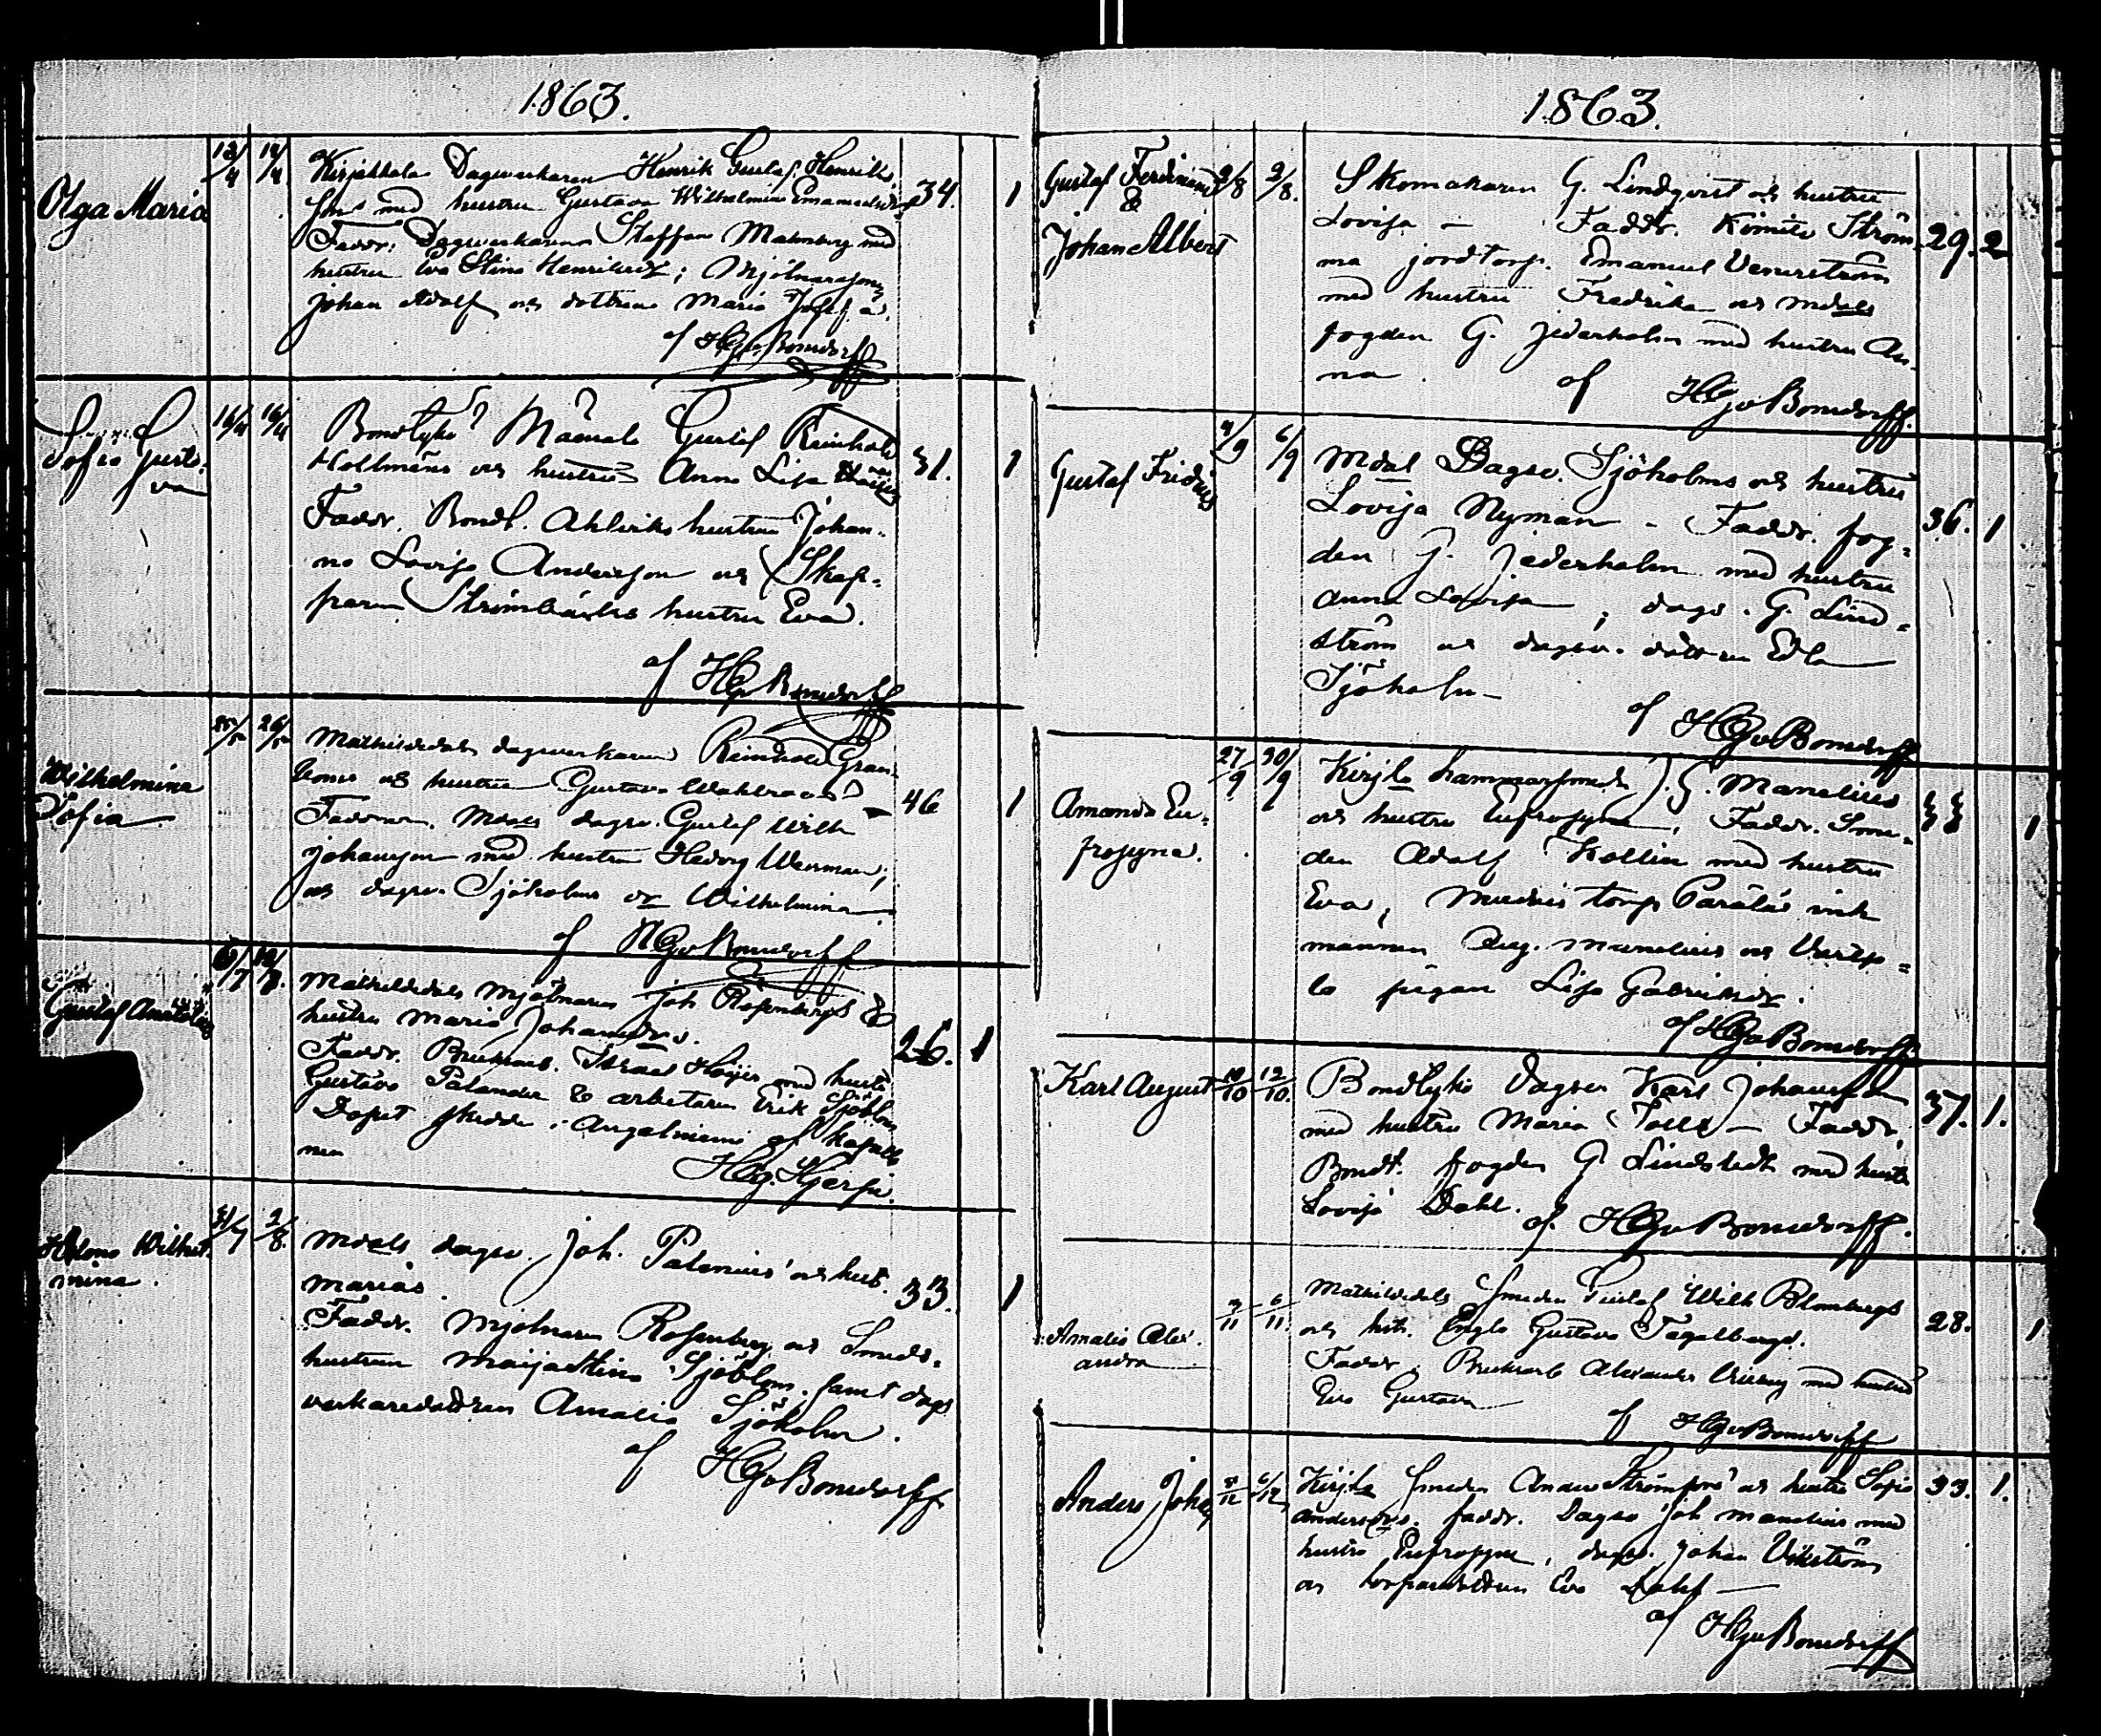 1863.
Olga Maria
13/4 14/4
Kirjakkala Dagsverkaren Henrik Gustaf Henriks
son med hustru Gustava Wilhelmina Emanuelsdr
34. 1
Faddr: Dagsverkaren Staffan Malmberg med
hustru Eva Stina Henriksdr; Mjölnaresonen
Johan Adolf och dottren Maria
af HGvBonsdorff
Sofia Gusta
va
16/4 16/4
Bondlyko Gustaf Reinhold
Hollméns och hustru Anna Lisa
31. 1
Faddr. Bondl. Ahlviks hustru Johan-
na Lovisa Andersson och Skep-
paren Strömbäcks hustru Eva.
af HGvBonsdorff
Wilhelmina
Sofia
25/5 26/5
Mathildedals dagsverkaren Reinhold Gran-
boms och hustru Gustava
46 1
Faddrar. Mdals dagsv. Gustaf Wilh
Johansson med hustru Hedvig Werman,
och dagsv. Sjöholms dr Wilhelmina
af HGvBonsdorff
Gustaf Anatolius
6/7
Mathildedals Mjölnaren Joh Rosenbergs &
hustru Maria Johansdrs.
26. 1
Faddr. Bruksarb. Israel Höijer med hustr
Gustava Palander & arbetaren Erik Sjöblom
Dopet skedde i Angelniemi af kapella
nen
HG. Hjerpe.
Helena Wilhel-
mina.
31/7 2/8
Mdals dagsv. Joh. Palenius' och hust.
Marias.
33. 1
Faddr. Mjölnaren Rosenberg och Smeds-
hustrun Maija Stina Sjöblom, samt dags
verkaredottren Amalia Sjöholm.
af HGvBonsdorff
1863.
Gustaf Ferdinand
&
Johan Albert
2/8 2/8.
Skomakaren G. Lindqvist och hustru
Lovisa - Faddr. Kimito Ström-
29. 2
ma jordtorp. Emanuel Venerström
med hustru Fredrika och Mdals
fogden G. Jederholm med hustru An-
na.
af HGvBonsdorff.
Gustaf Fridolf
4/9 6/9
Mdal Dagsv. Sjöholms och hustru
Lovisa Nyman - Faddr. fog-
36. 1
den G. Jederholm med hustru
Anna Lovisa, dags. G. Lind-
ström och dagsv. dottren Edla
Sjöholm -
af HGvBonsdorff
Amanda Eu-
frosyne.
27/9 30/9
Kirjla hammarsmeds J. G. Manelius
och hustru Eufrosyne, Faddr. Sme-
33 1
den Adolf Kollin med hustru
Eva, torp
Aug. Manelius och
la pigan Lisa Gabrielsdr.
af HGvBonsdorff.
Karl August
10/10 12/10.
Bondlyko Dagsv Karl Johansson
med hustru Maria - Faddr.
37. 1.
Bondl. fogden G. Lindstedt med hust
Lovisa Dahl.
af. HGvBonsdorff.
Amalia Alex-
andra
3/11 6/11.
Mathildedals Smeden Gustaf Wilh Blombergs
och hust. Engla Gustava Tegelbergs.
28. 1
Faddr. Bruksarb Alexander med hustru
Eva Gustava
af HGvBonsdorff
Anders Johan
5/12 6/12
Kirjla Smeden Anders Strömfors' och hustru Sofia
33. 1.
Andersdrs. Faddr. Dagsv Joh Manelius med
hustru Eufrosyne, dagsv. Johan Vikström
och torparedottren Eva Dahl -
af HGvBonsdorff